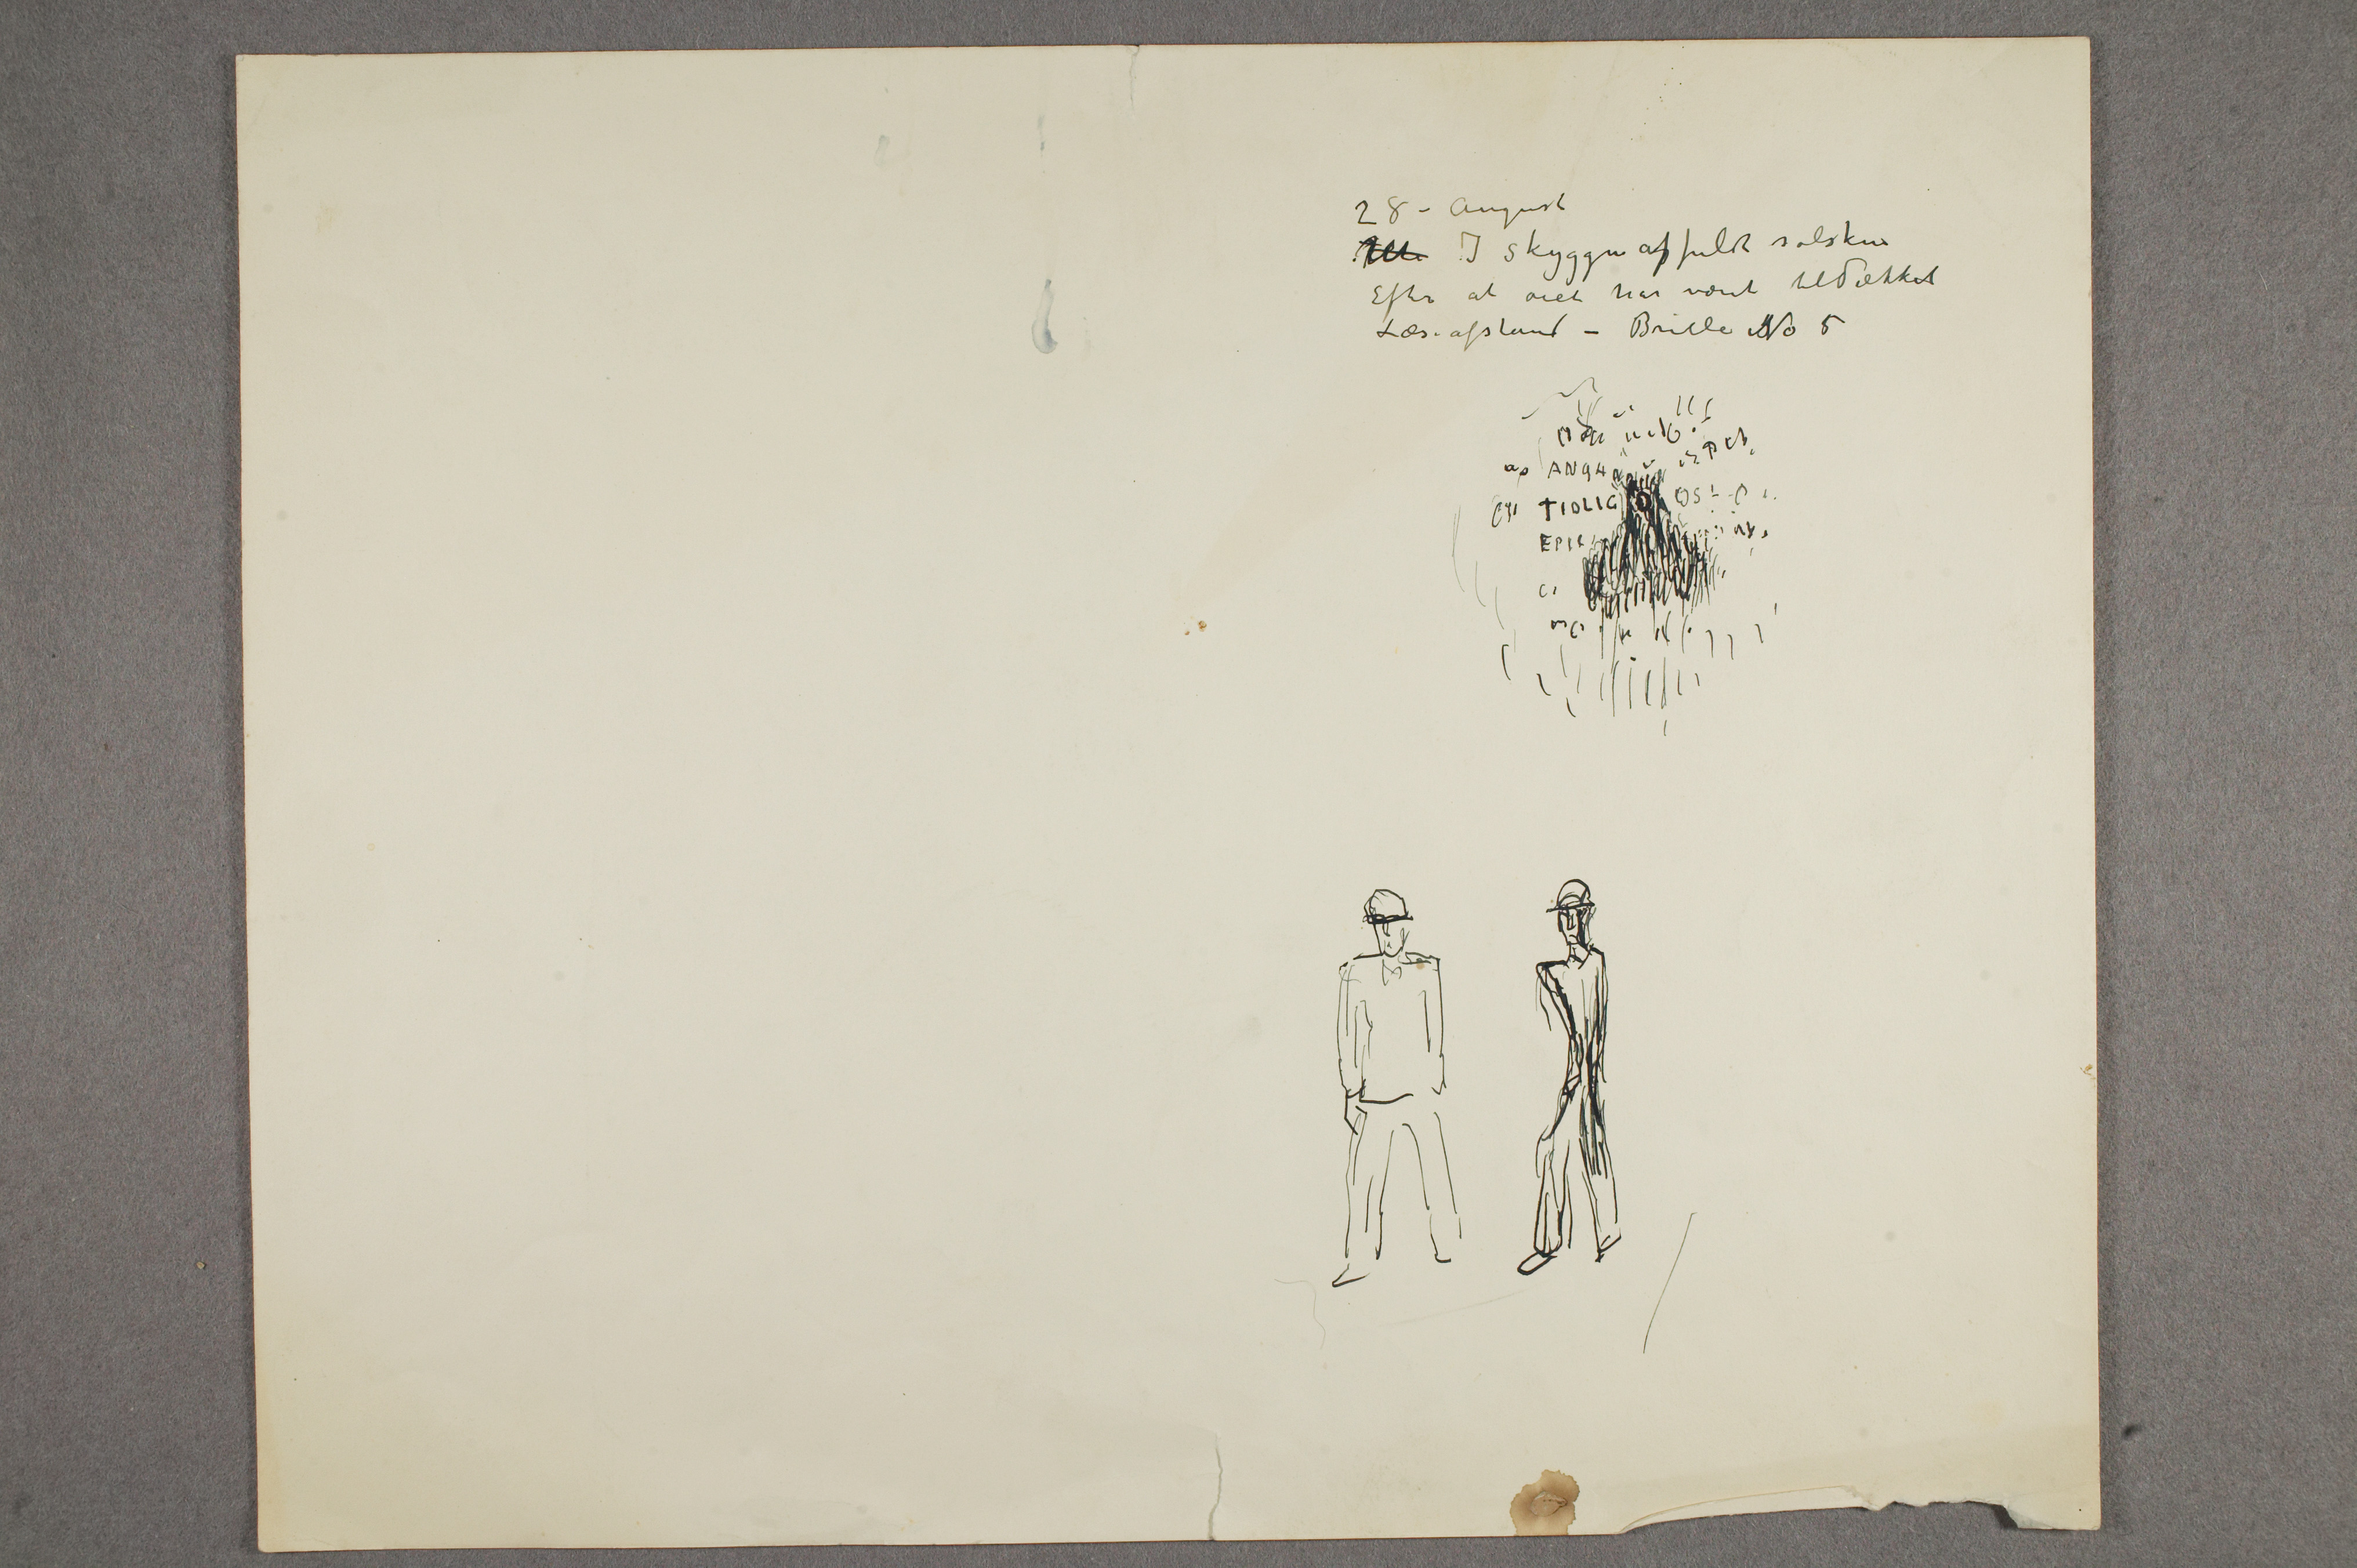 28 - August
I Skyggen af fuldt solskin
Efter at öiet har været tildækket
Læseafstand - Brille No 5
ANGH
TIDLIG
EPIS